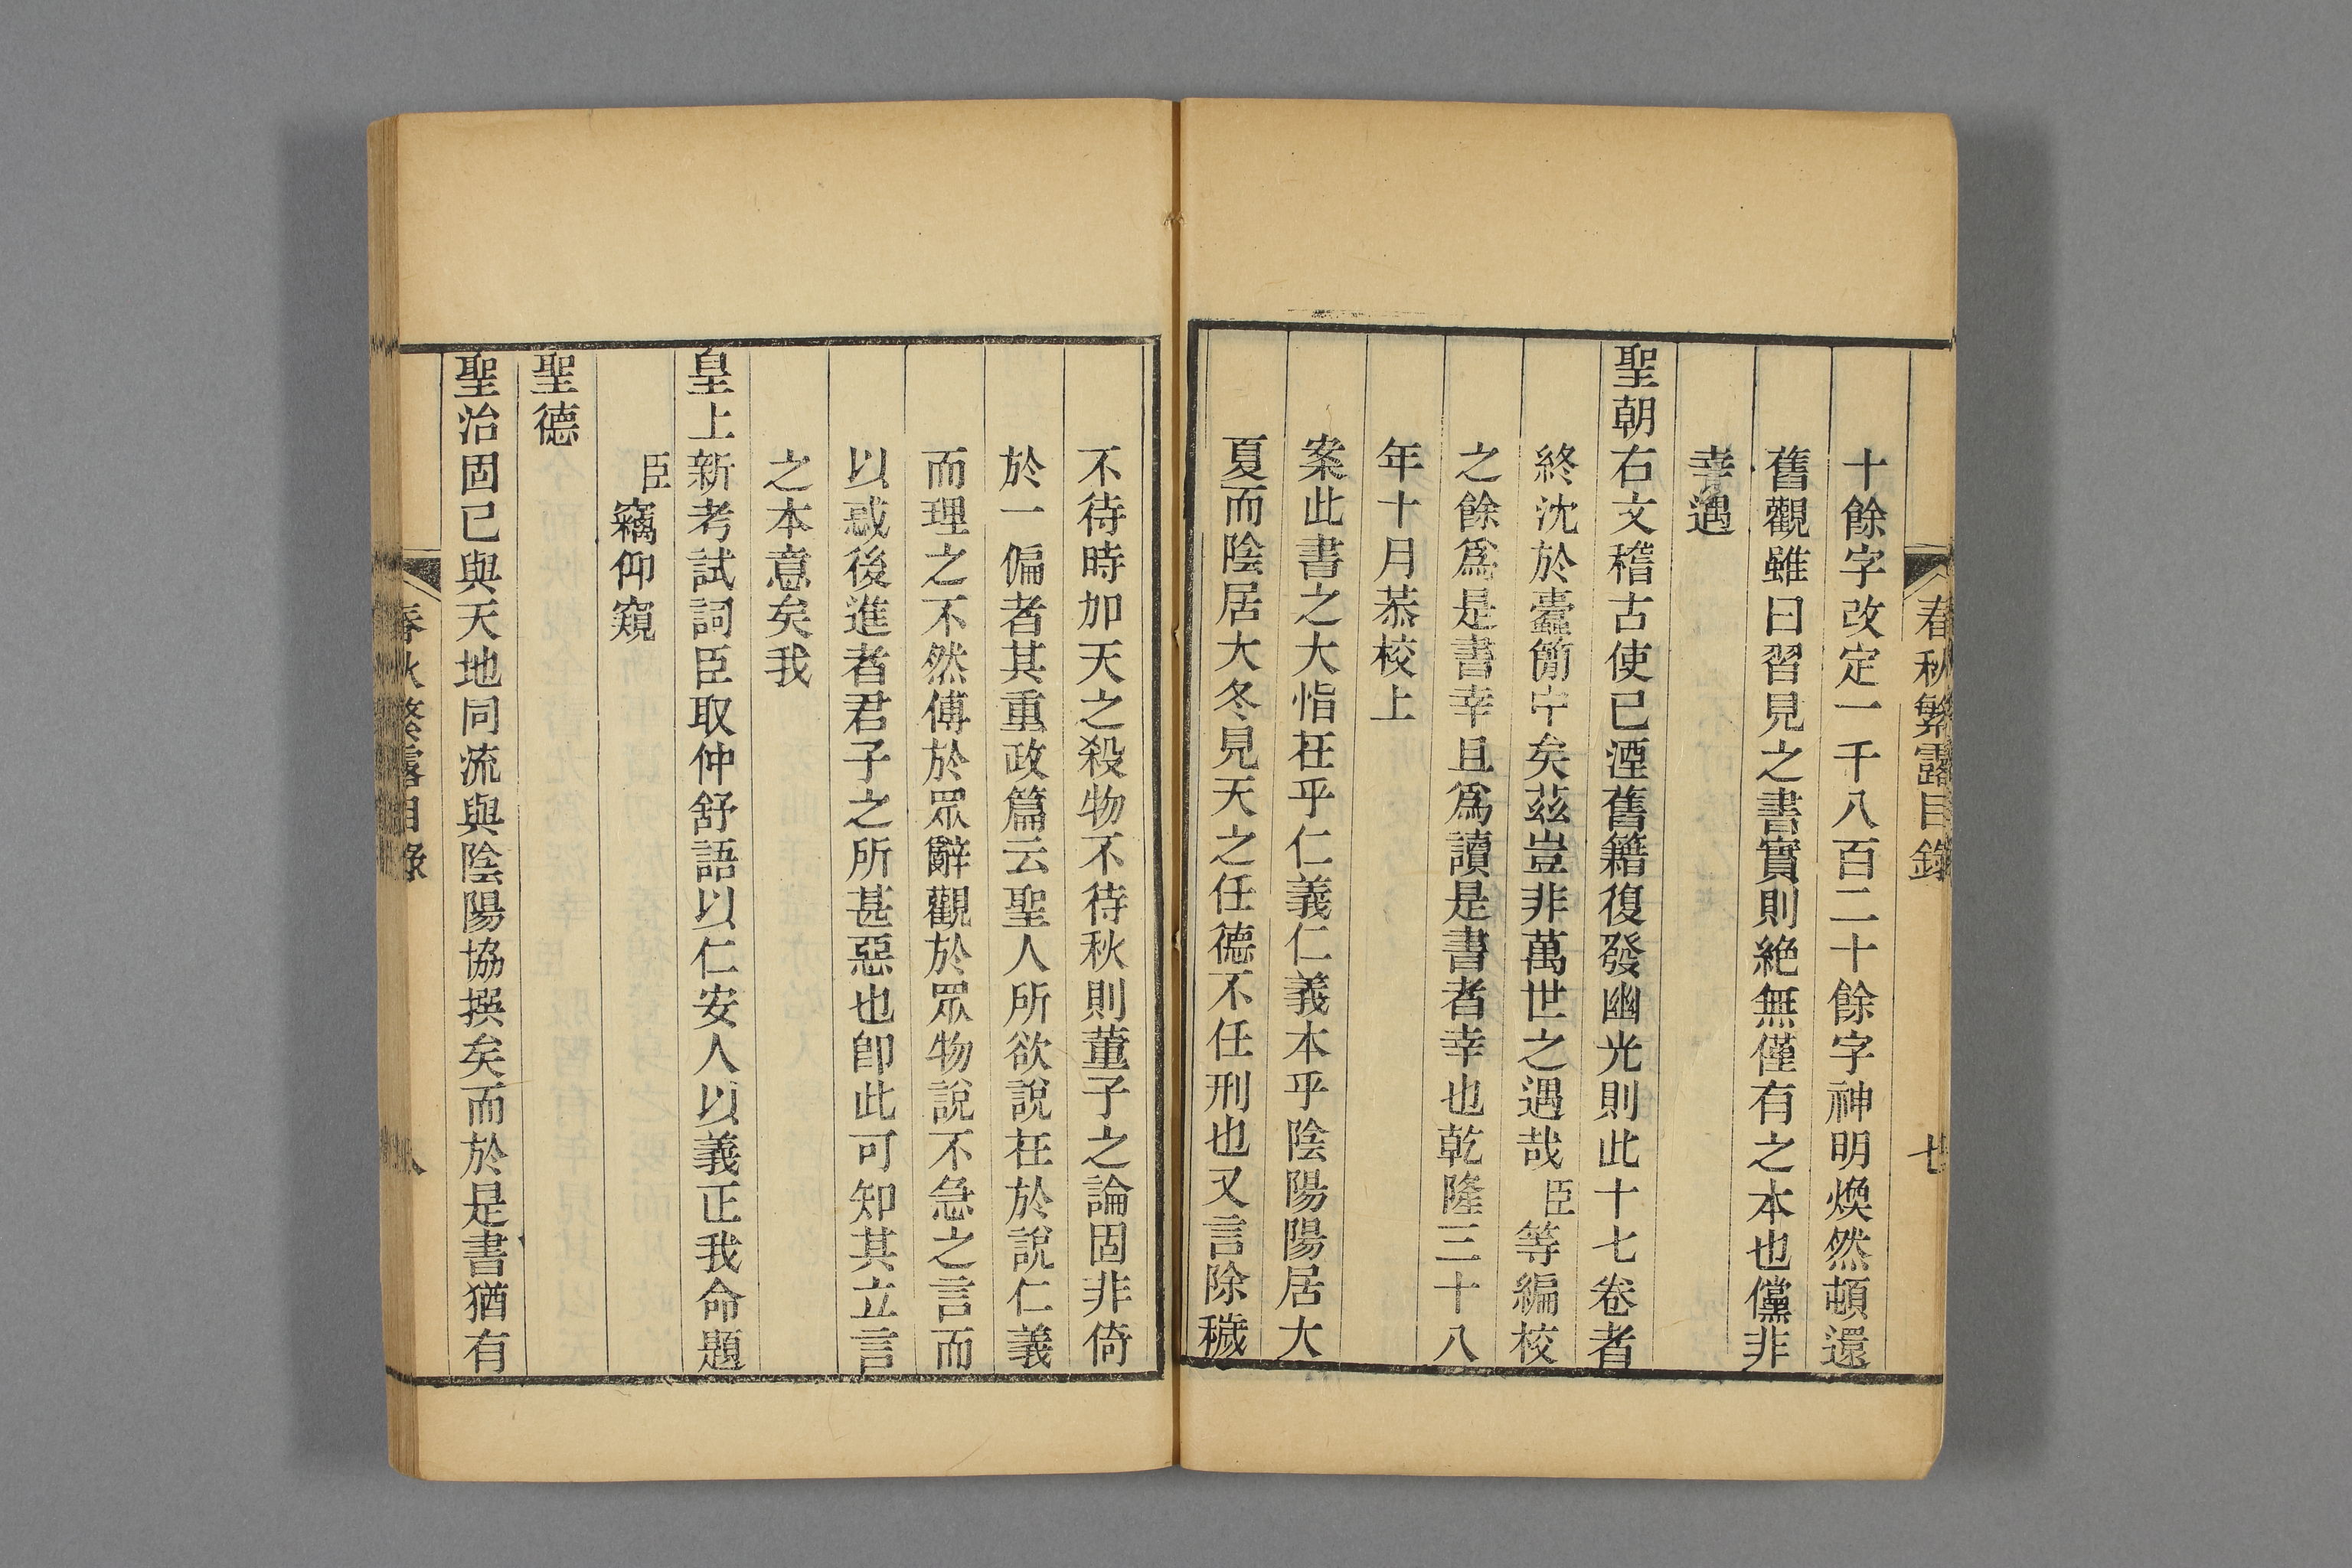 春秋繁露目錄
七
十餘字改定一千八百二十餘字神明煥然頓還
舊觀雖曰習見之書實則絶無僅有之本也儻非
幸遇
聖朝右文稽古使已湮舊籍復發幽光則此十七卷者
終沈於蠹簡中矣茲豈非萬世之遇哉臣等編校
之餘爲是書幸且爲讀是書者幸也乾隆三十八
年十月恭校上
案此書之大恉在乎仁義仁義本乎陰陽陽居大
夏而陰居大冬見天之任德不任刑也又言除穢
不待時加天之殺物不待秋則董子之論固非倚
於一偏者其重政篇云聖人所欲說在於說仁義
而理之不然傅於眾辭觀於眾物說不急之言而
以惑後進者君子之所甚惡也卽此可知其立言
之本意矣我
皇上新考試詞臣取仲舒語以仁安人以義正我命題
臣竊仰窺
聖德
聖治固已與天地同流與陰陽協撰矣而於是書猶有
春秋繁露目錄
八